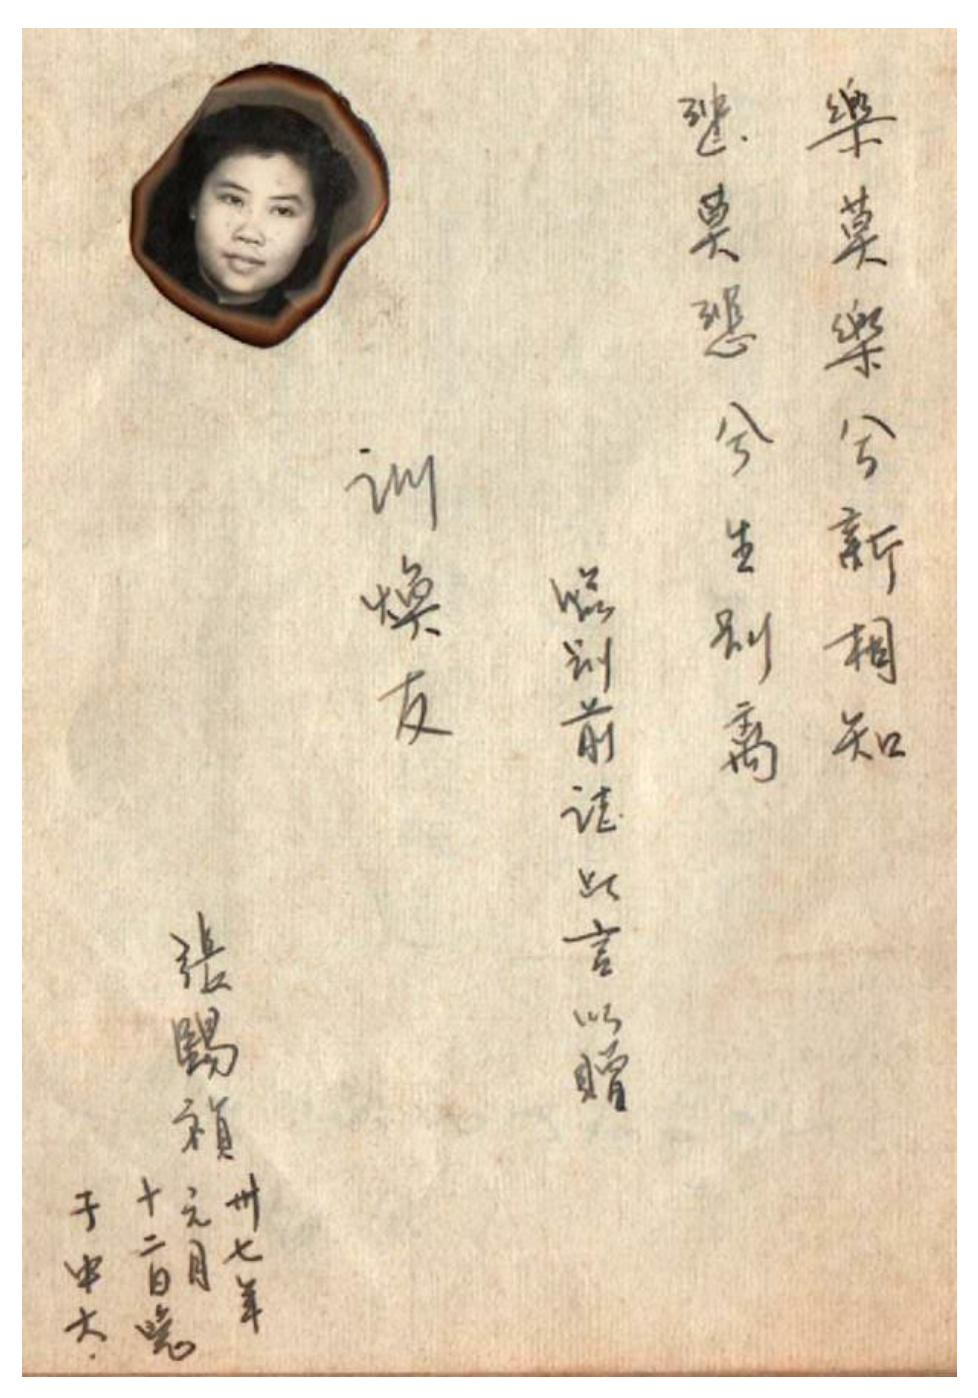 樂莫樂兮新相知
悲莫悲兮生別离
臨別前誌此言以贈
訓煥友
張賜禎
卅七年
元月
十二日晚
于中大.